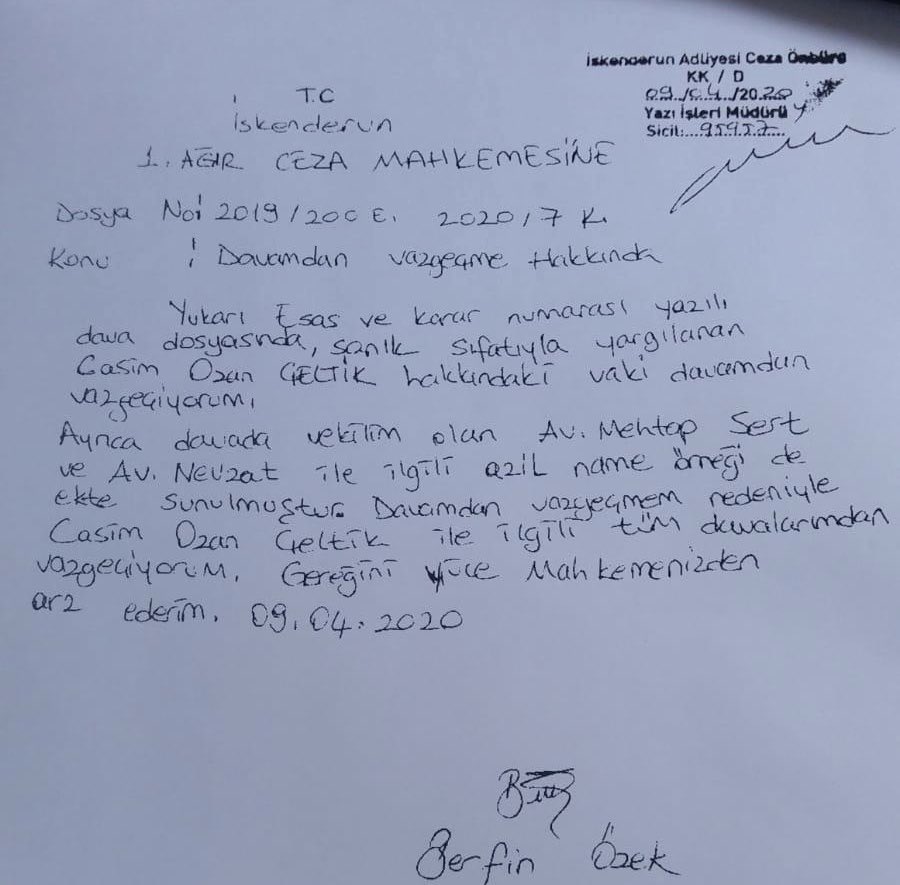 İskenderun Adliyesi Ceza Önbüro
KK / D
09/04/2020
Yazı İşleri Müdürü
Sicil:...95957...
T.C
İskenderun
1. AĞIR CEZA MAHKEMESİNE
Dosya No: 2019/200 E. 2020/7 K.
Konu : Davamdan vazgeçme Hakkında
Yukarı Esas ve karar numarası yazılı
dava dosyasında, sanık sıfatıyla yargılanan
Casim Ozan ÇELTİK hakkındaki vaki davamdan
vazgeçiyorum.
Ayrıca davada vekilim olan Av. Mehtap Sert
ve Av. Nevzat ile ilgili azil name örneği de
ekte sunulmuştur. Davamdan vazgeçmem nedeniyle
Casim Ozan Çeltik ile ilgili tüm davalarımdan
vazgeçiyorum. Gereğini yüce Mahkemenizden
arz ederim. 09.04.2020
Berfin Özek